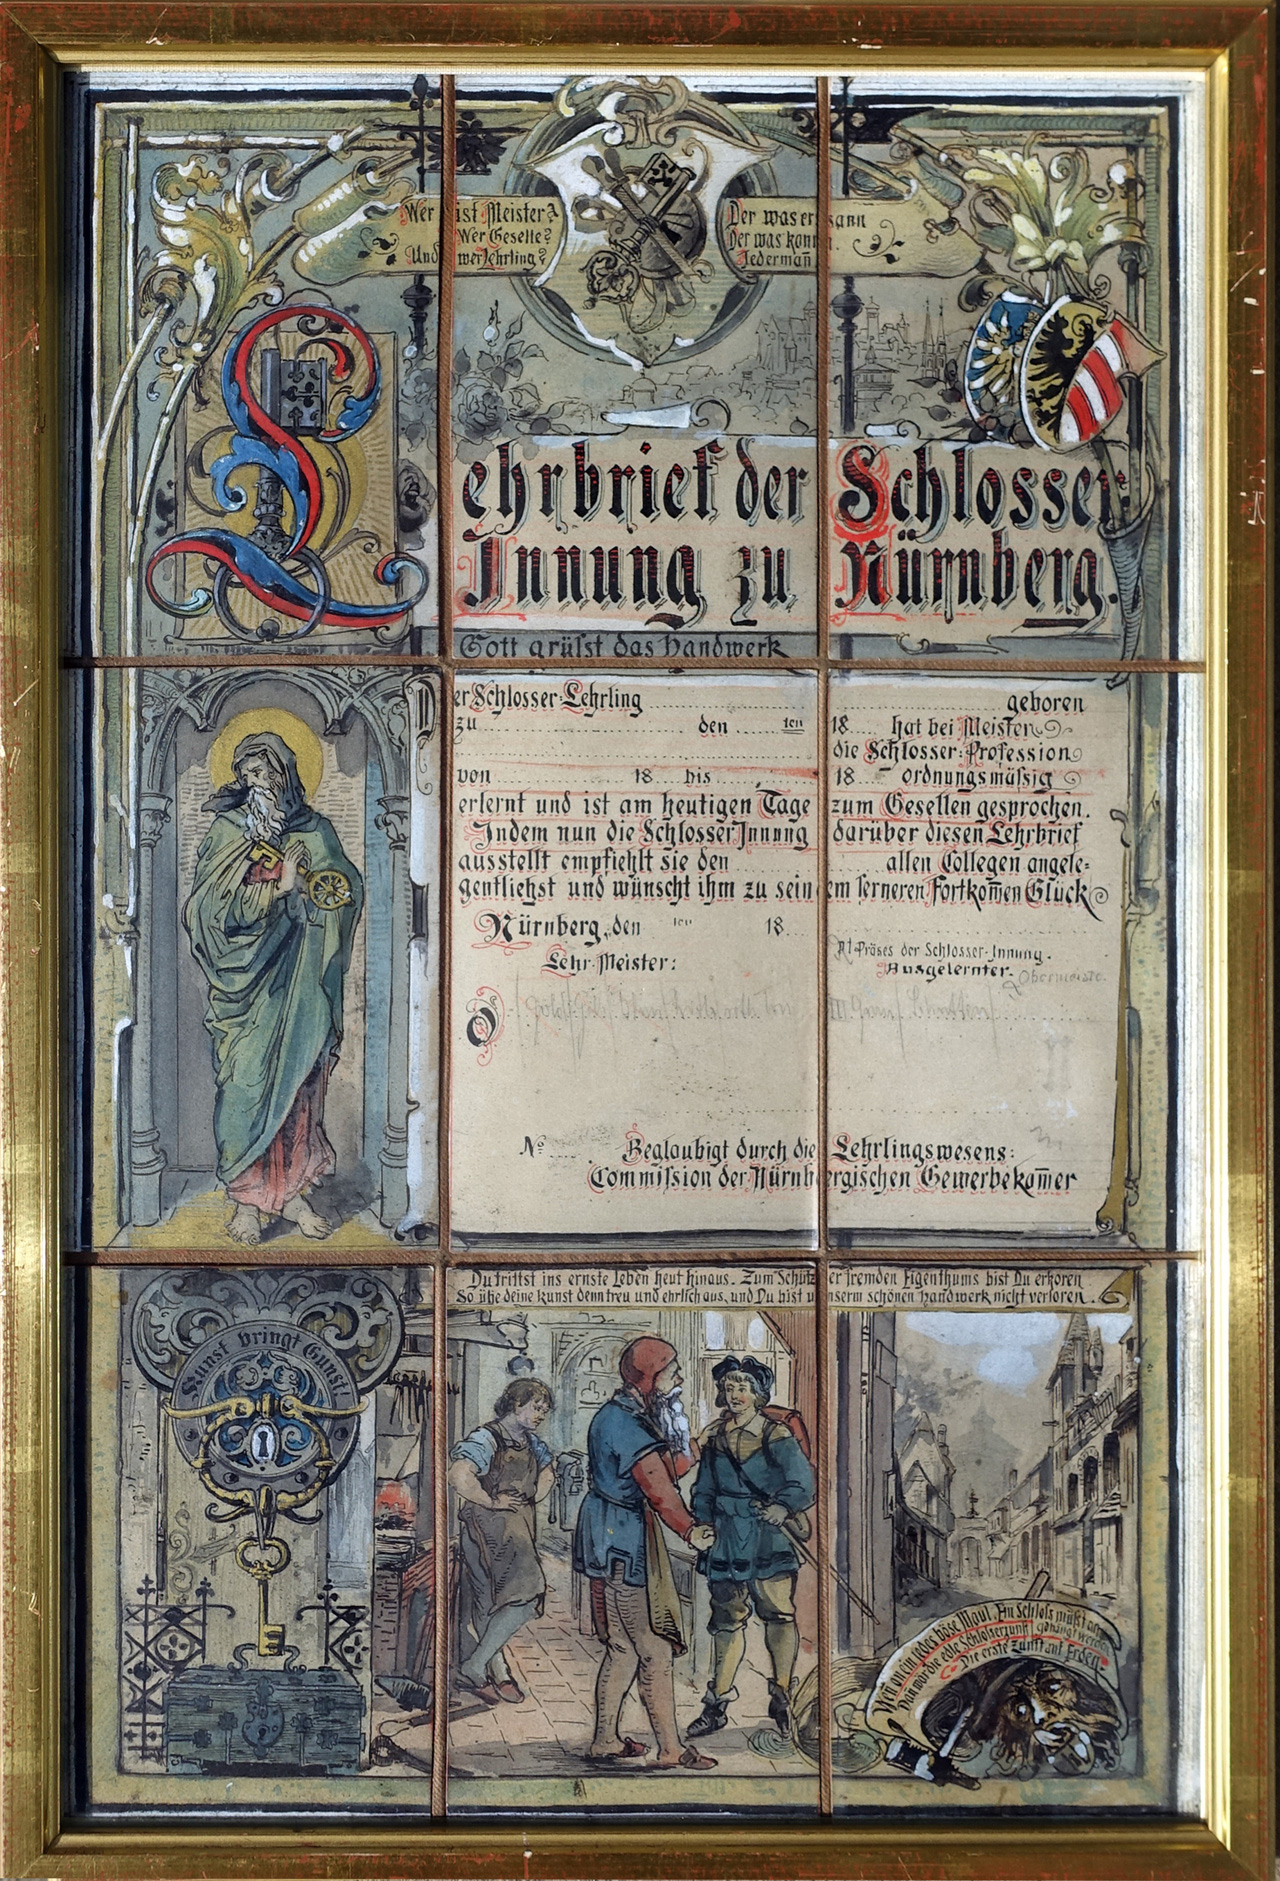 Wer ist Meister?
Wer Geselle?
Und wer Lehrling?
Der was ersann
Der was konn.
Jedermañ
Lehrbrief der Schlosser
Innung zu Nürnberg.
Gott grüsst das Handwerk
Der Schlosser-Lehrling geboren
zu den ten 18 hat bei Meister
die Schlosser-Profession
von 18 bis 18 ordnungsmässig
erlernt und ist am heutigen Tage zum Gesellen gesprochen.
Indem nun die Schlosser Innung darüber diesen Lehrbrief
ausstellt empfiehlt sie den allen Collegen angele-
gentlichst und wünscht ihm zu seinem ferneren Fortkom̄en Glück
Nürnberg, den ten 18
Präses der Schlosser-Innung.
Lehr-Meister:
Ausgelernter.
Obermeister
No. Beglaubigt durch die Lehrlingswesens-
Commission der Nürnbergischen Gewerbekam̄er
Du trittst ins ernste Leben heut hinaus. Zum Schützer fremden Eigenthums bist Du erkoren
So übe deine Kunst denn treu und ehrlich aus, und Du bist unserm schönen Handwerk nicht verloren.
Kunst bringt Gunst!
Weñ an ein jedes böse Maul. Ein Schloss müsst angehängt werden
Dañ wär die edle Schlosserzunft
Die erste Zunft auf Erden.